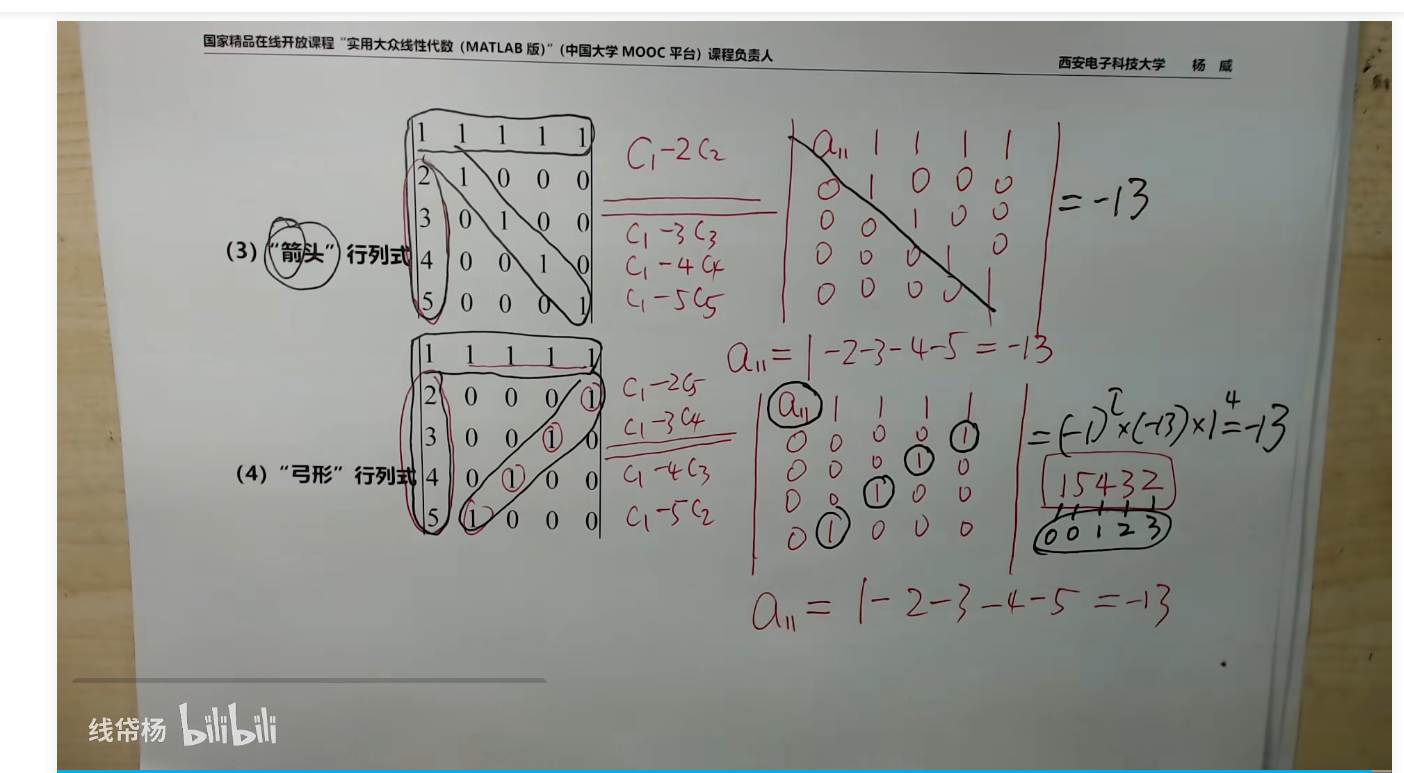 国家精品在线开放课程“实用大众线性代数（MATLAB 版）”（中国大学 MOOC 平台）课程负责人
西安电子科技大学 杨 威
(3) “箭头” 行列式
1 1 1 1 1
2 1 0 0 0
3 0 1 0 0
4 0 0 1 0
5 0 0 0 1
C₁-2C₂
C₁-3C₃
C₁-4C₄
C₁-5C₅
a₁₁ 1 1 1 1
0 1 0 0 0
0 0 1 0 0
0 0 0 1 0
0 0 0 0 1
= -13
a₁₁ = 1-2-3-4-5 = -13
(4) “弓形” 行列式
1 1 1 1 1
2 0 0 0 1
3 0 0 1 0
4 0 1 0 0
5 1 0 0 0
C₁-2C₅
C₁-3C₄
C₁-4C₃
C₁-5C₂
a₁₁ 1 1 1 1
0 0 0 0 1
0 0 0 1 0
0 0 1 0 0
0 1 0 0 0
= (-1)^τ×(-13)×1⁴=-13
15432
00123
a₁₁ = 1-2-3-4-5 = -13
线帒杨 bilibili